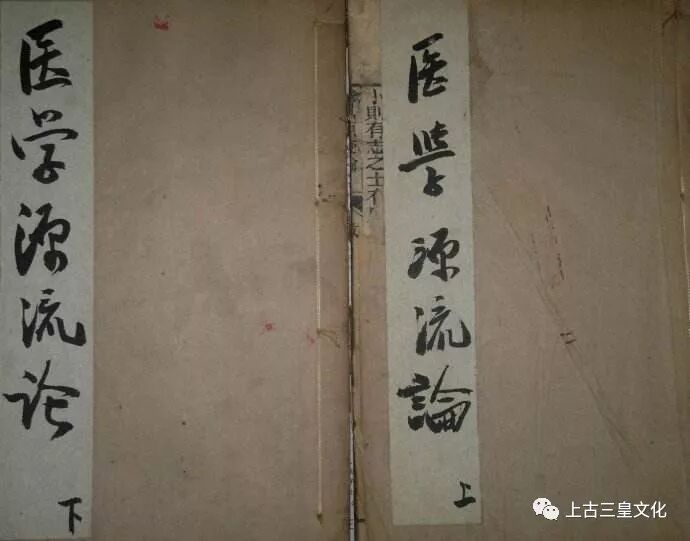 医学源流论
下
卜則有志之士不
医學源流論
上
上古三皇文化